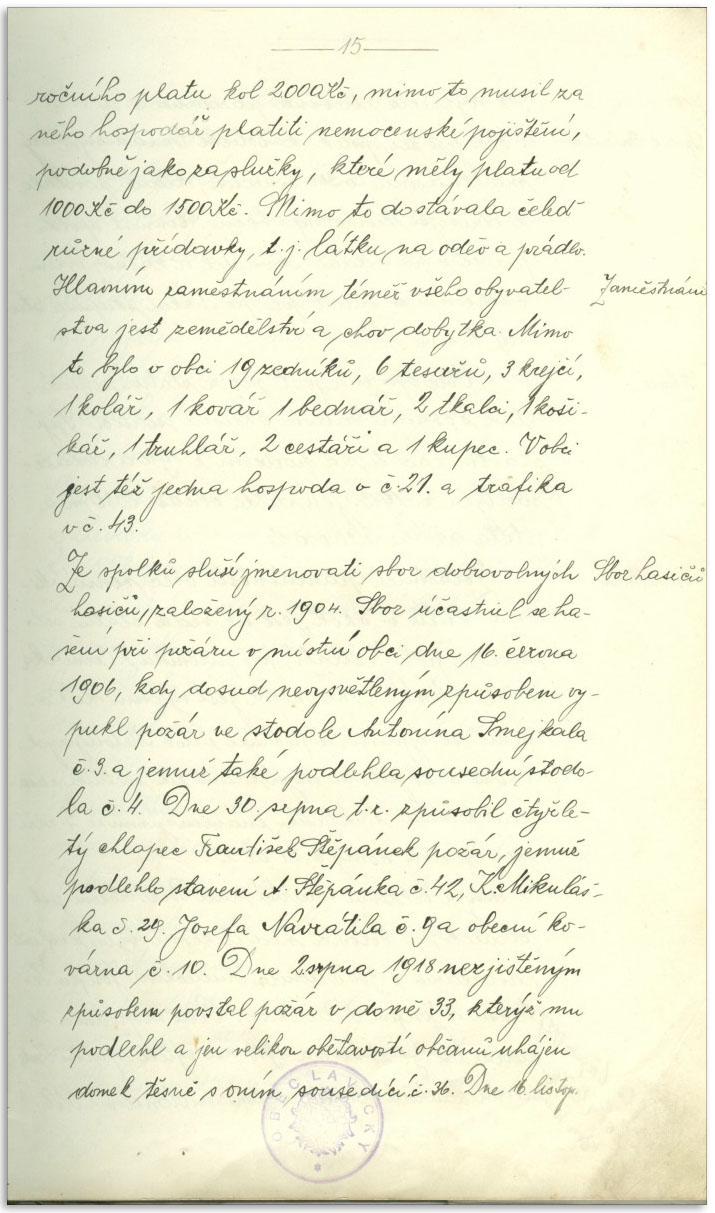 15
ročního platu kol 2000Kč, mimo to musil za
něho hospodář platiti nemocenské pojištění,
podobně jako za služky, které měly platu od
1000Kč do 1500Kč. Mimo to dostávala čeleď
různé přídavky, t.j. látku na oděv a prádlo.
Hlavním zaměstnáním téměř všeho obyvatel-
Zaměstnání
stva jest zemědělství a chov dobytka. Mimo
to bylo v obci 19 zedníků, 6 tesařů, 3 krejčí,
1 kolář, 1 kovář 1 bednář, 2 tkalci, 1 koši-
kář, 1 truhlář, 2 cestáři a 1 kupec. V obci
jest též jedna hospoda v č.21. a trafika
v č. 43.
Ze spolků sluší jmenovati sbor dobrovolných
Sbor hasičů
hasičů, založený r. 1904. Sbor účastnil se ha-
šení při požáru v místní obci dne 16. června
1906, kdy dosud nevysvětleným způsobem vy-
pukl požár ve stodole Antonína Smejkala
č. 3. a jemuž také podlehla sousední stodo-
la č. 4. Dne 30. srpna t.r. způsobil čtyřle-
tý chlapec František Štěpánek požár, jemuž
podlehlo stavení A. Štěpánka č. 42, K. Mikuláš-
ka č. 29. Josefa Navrátila č. 9 a obecní ko-
várna č. 10. Dne 2 srpna 1918 nezjištěným
způsobem povstal požár v domě 33, kterýž mu
podlehl a jen velikou obětavostí občanů uhájen
domek těsně s oním sousedící č. 36. Dne 16. listop.
OBEC LAVIČKY